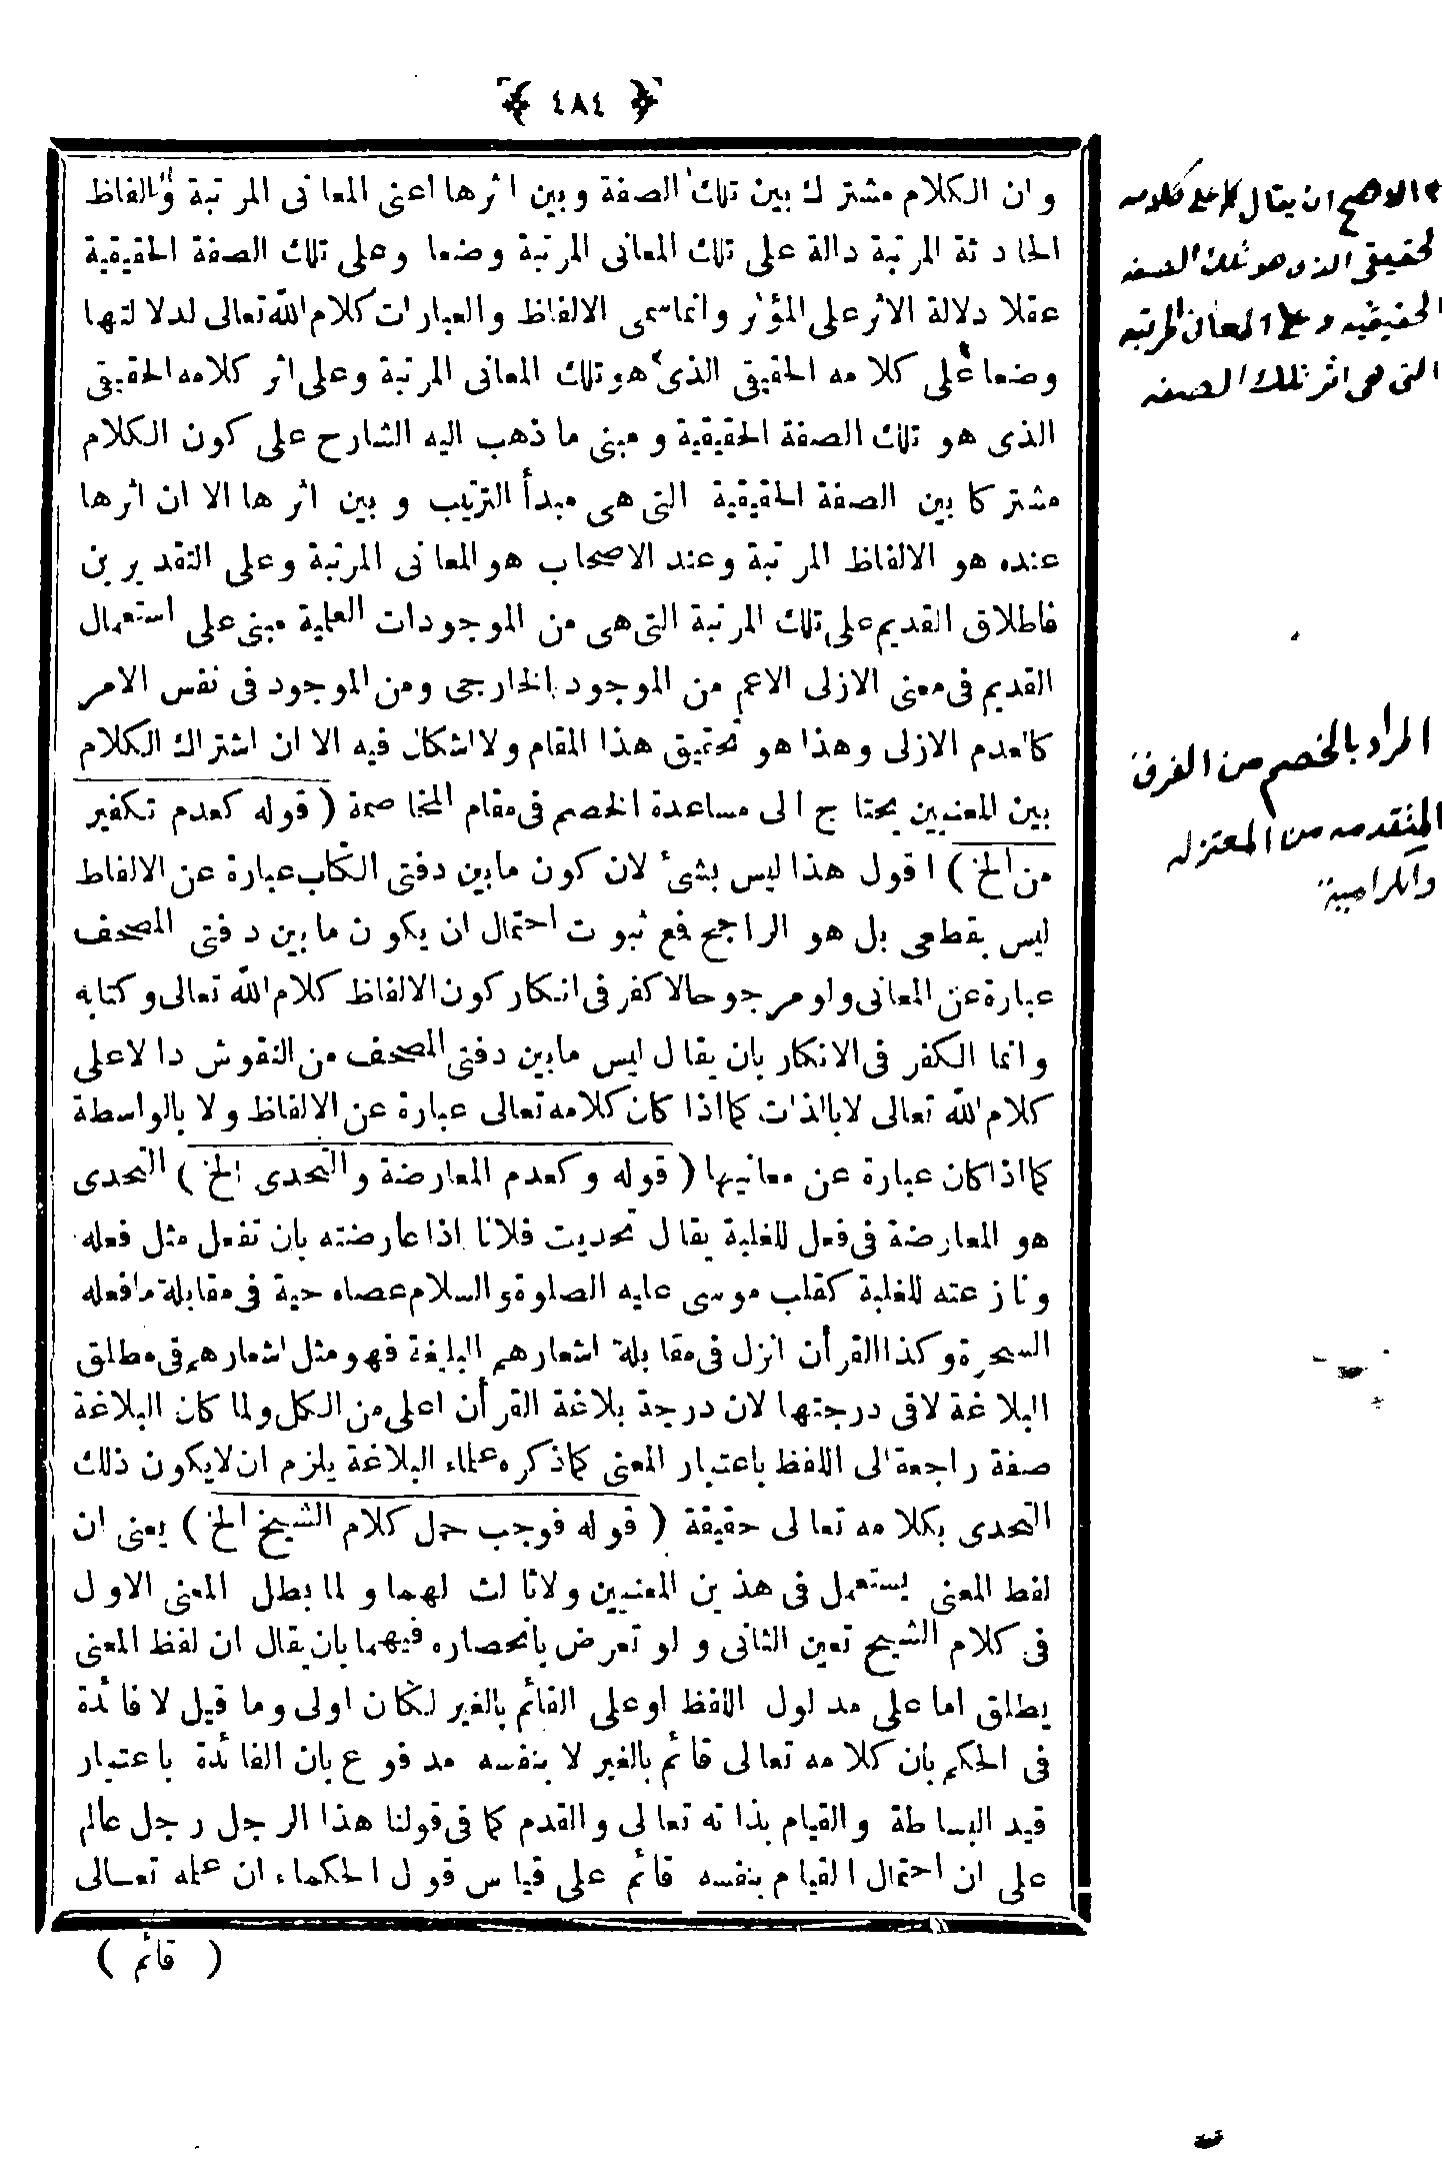 ﴿ ٤٨٤ ﴾
وان الكلام مشترك بين تلك الصفة وبين اثرها اعنى المعانى المرتبة والالفاظ
الحادثة المرتبة دالة على تلك المعانى المرتبة وضعا وعلى تلك الصفة الحقيقية
عقلا دلالة الاثر على المؤثر وانما سمى الالفاظ والعبارات كلام الله تعالى لدلالتها
وضعا على كلامه الحقيقى الذى هو تلك المعانى المرتبة وعلى اثر كلامه الحقيقى
الذى هو تلك الصفة الحقيقية ومبنى ما ذهب اليه الشارح على كون الكلام
مشتركا بين الصفة الحقيقية التى هى مبدأ الترتيب وبين اثرها الا ان اثرها
عنده هو الالفاظ المرتبة وعند الاصحاب هو المعانى المرتبة وعلى التقديرين
فاطلاق القديم على تلك المرتبة التى هى من الموجودات العلمية مبنى على استعمال
القديم فى معنى الازلى الاعم من الموجود الخارجى ومن الموجود فى نفس الامر
كالعدم الازلى وهذا هو تحقيق هذا المقام ولا اشكال فيه الا ان اشتراك الكلام
بين المعنيين يحتاج الى مساعدة الخصم فى مقام المخاصمة ( قوله كعدم تكفير
من الخ ) اقول هذا ليس بشئ لان كون مابين دفتى الكتاب عبارة عن الالفاظ
ليس بقطعى بل هو الراجح فمع ثبوت احتمال ان يكون مابين دفتى المصحف
عبارة عن المعانى ولو مرجوحا لا كفر فى انكار كون الالفاظ كلام الله تعالى وكتابه
وانما الكفر فى الانكار بان يقال ليس مابين دفتى المصحف من النقوش دالا على
كلام الله تعالى لا بالذات كما اذا كان كلامه تعالى عبارة عن الالفاظ ولا بالواسطة
كما اذا كان عبارة عن معانيها ( قوله وكعدم المعارضة والتحدى الخ ) التحدى
هو المعارضة فى فعل للغلبة يقال تحديت فلانا اذا عارضته بان تفعل مثل فعله
ونازعته للغلبة كقلب موسى عليه الصلوة والسلام عصاه حية فى مقابلة مافعله
السحرة وكذا القرأن انزل فى مقابلة اشعارهم البليغة فهو مثل اشعارهم فى مطلق
البلاغة لا فى درجتها لان درجة بلاغة القرأن اعلى من الكل ولما كان البلاغة
صفة راجعة الى اللفظ باعتبار المعنى كما ذكره علماء البلاغة يلزم ان لا يكون ذلك
التحدى بكلامه تعالى حقيقة ( قوله فوجب حمل كلام الشيخ الخ ) يعنى ان
لفظ المعنى يستعمل فى هذين المعنيين ولا ثالث لهما ولما بطل المعنى الاول
فى كلام الشيخ تعين الثانى ولو تعرض بانحصاره فيهما بان يقال ان لفظ المعنى
يطلق اما على مدلول اللفظ او على القائم بالغير لكان اولى وما قيل لا فائدة
فى الحكم بان كلامه تعالى قائم بالغير لا بنفسه مدفوع بان الفائدة باعتبار
قيد البساطة والقيام بذاته تعالى والقدم كما فى قولنا هذا الرجل رجل عالم
على ان احتمال القيام بنفسه قائم على قياس قول الحكماء ان علمه تعالى
( قائم )
٢ الاصح ان يقال على كلامه
الحقيقى الذى هو تلك الصفة
الحقيقيه وعلى المعانى المرتبه
التى هى اثر تلك الصفه
المراد بالخصم من الفرق
المتقدمه من المعتزله
والكرامية